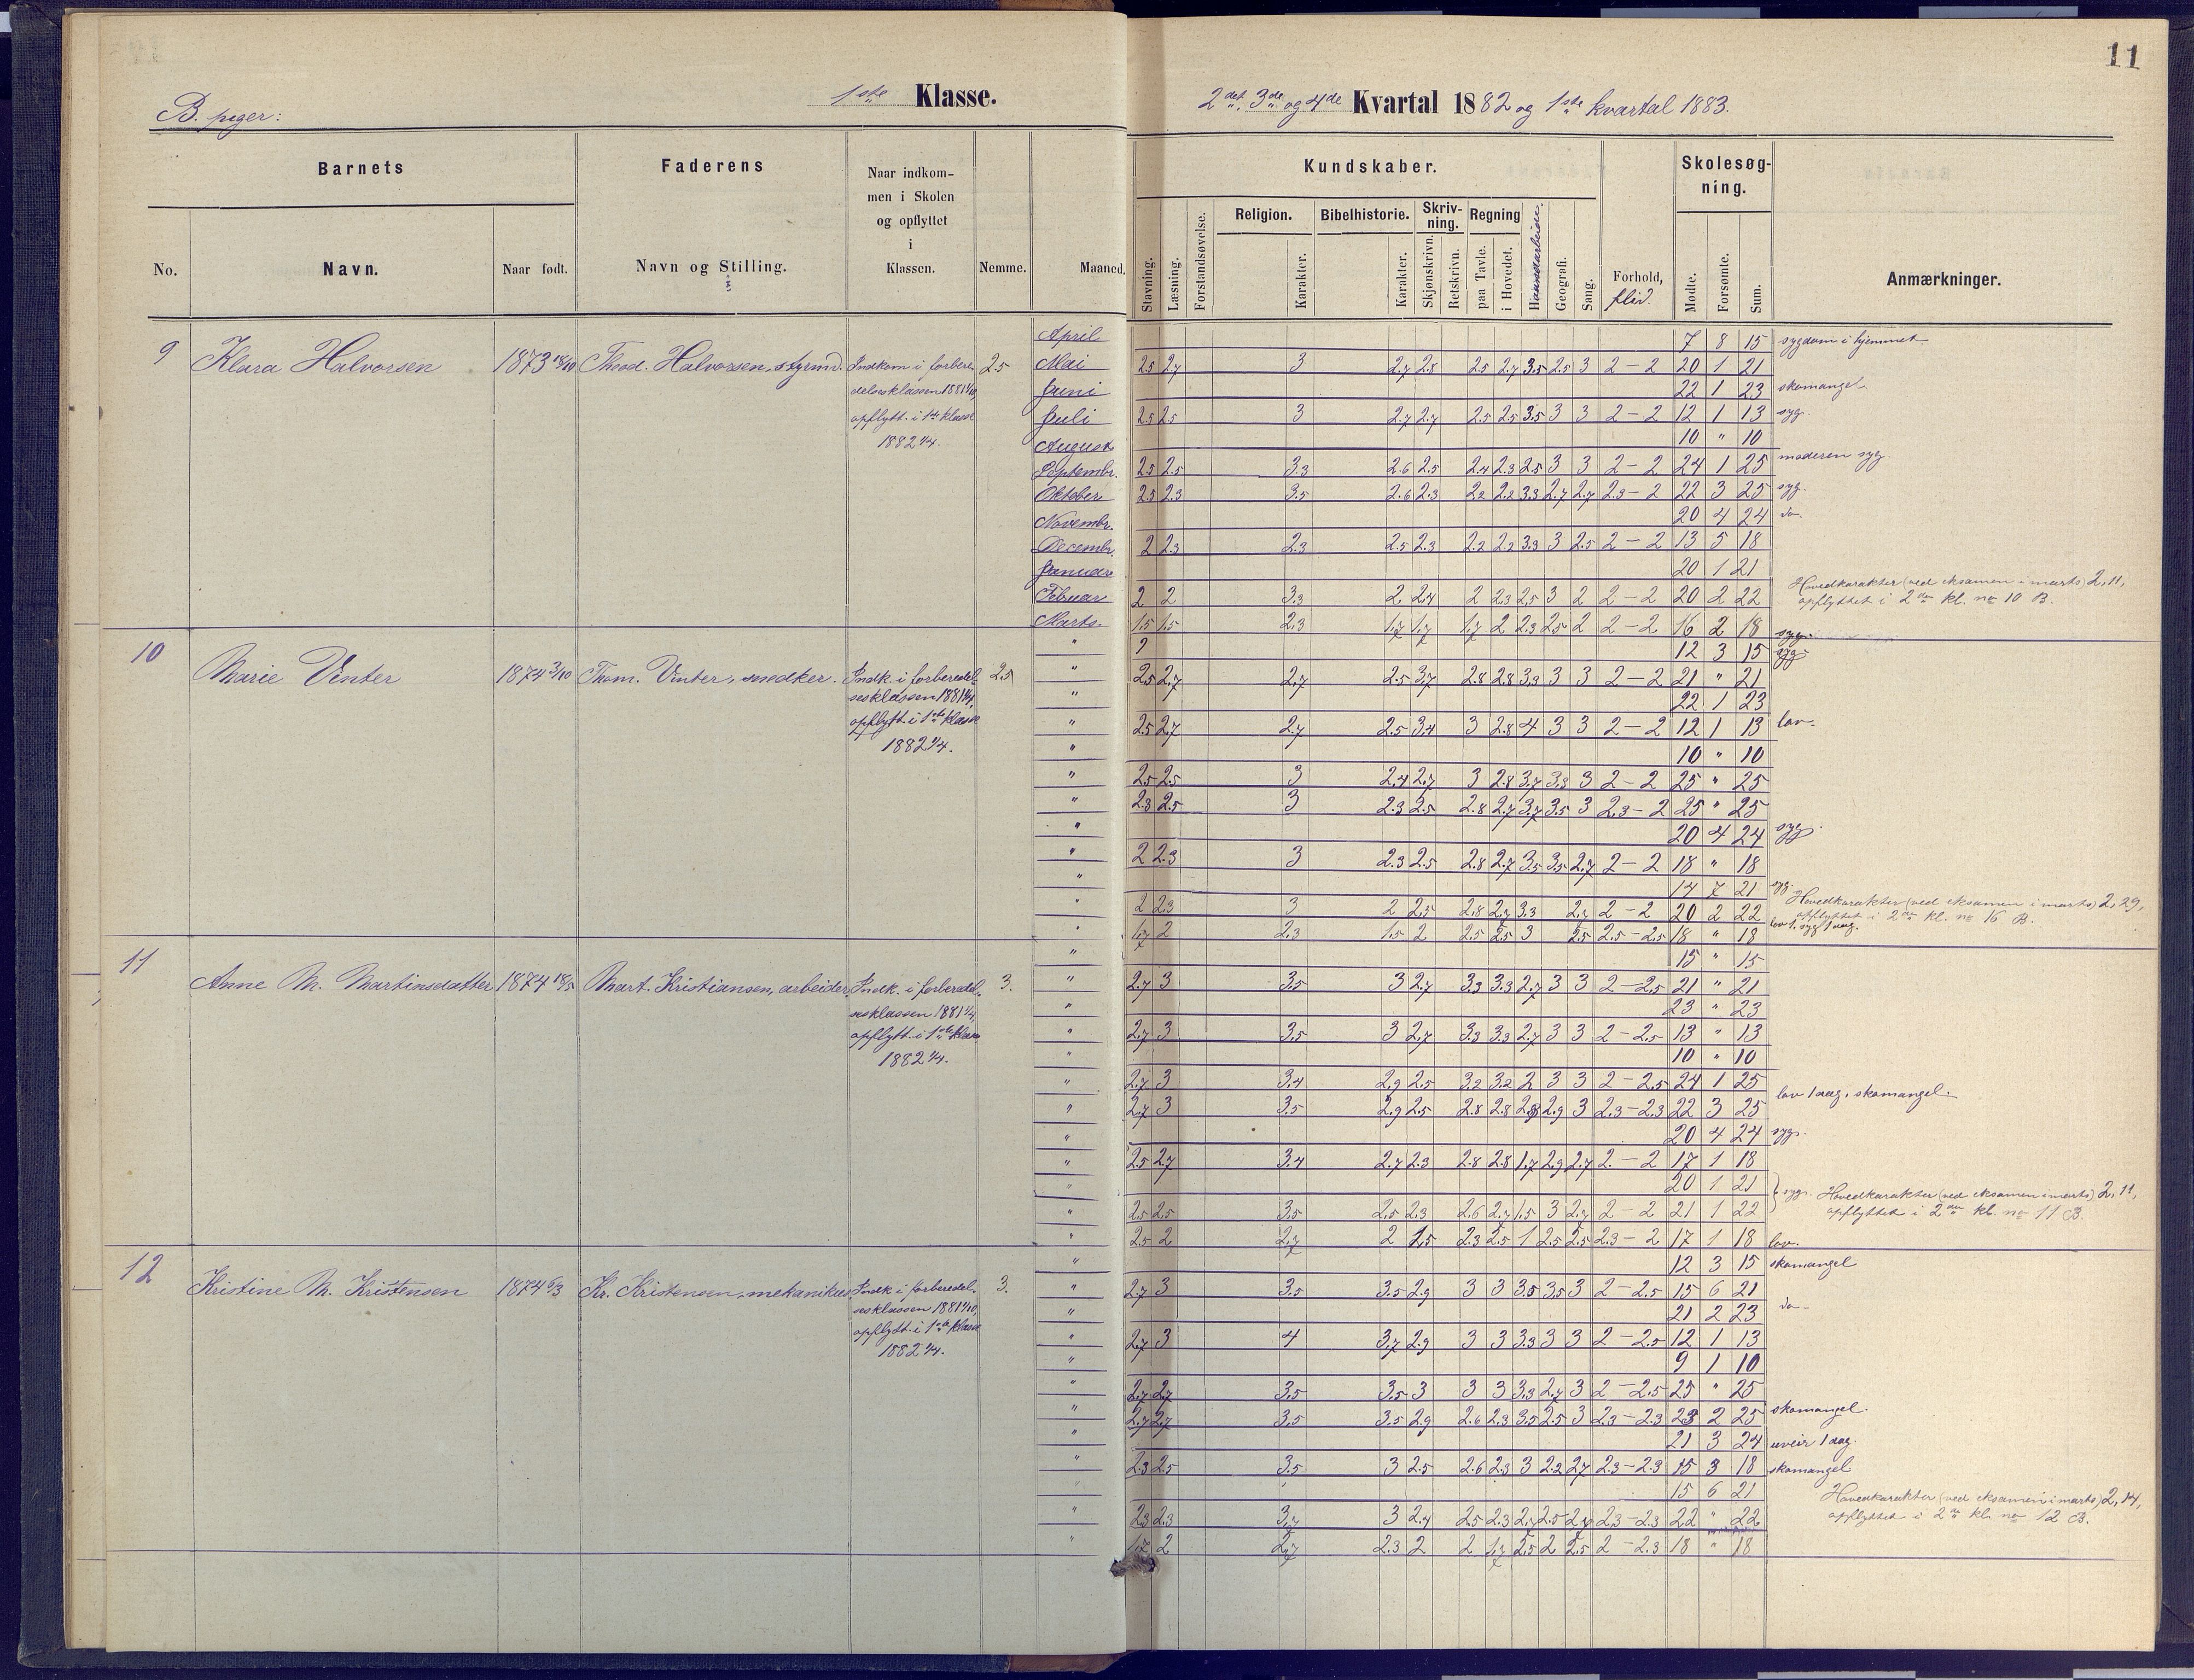 11
B. piger:
1ste Klasse.
2det, 3de og 4de Kvartal 1882 og 1ste kvartal 1883.
Barnets
Faderens
Naar indkom-
men i Skolen
og opflyttet
i
Klassen.
No.
Navn.
Naar født.
Navn og Stilling.
Nemme.
Maaned.
Kundskaber.
Stavning.
Læsning.
Forstandsøvelse.
Religion.
Karakter.
Bibelhistorie.
Karakter.
Skriv-
ning.
Skjønskrivn.
Retskrivn.
Regning
paa Tavle.
i Hovedet.
Haandarbeide.
Geografi.
Sang.
Forhold,
flid.
Skolesøg-
ning.
Mødte.
Forsømte.
Sum.
Anmærkninger.
9 Klara Halvorsen 1873 18/10 Theod. Halvorsen, styrmd. Indkom i forbere- 2.5
delsesklassen 1881
opflytt. i 1ste klasse
1882 1/4.
April 7 8 15 sygdom i hjemmet
Mai 2.5 2.7 3 2.7 2.8 2.5 2.7 3.5 2.5 3 2–2 20 1 21
Juni 22 1 23 skomangel
Juli 2.5 2.5 3 2.7 2.7 2.5 2.5 3.5 3 3 2–2 12 1 13 syg.
August 10 " 10
Septembr. 2.5 2.5 3.3 2.6 2.5 2.4 2.3 2.5 3 3 2–2 24 1 25 moderen syg.
Oktober 2.5 2.3 3.5 2.6 2.3 2.2 2.2 3.3 2.7 2.7 2.3–2 22 3 25 syg.
Novembr. 20 4 24 do.
Decembr. 2 2.3 2.3 2.5 2.3 2.2 2.2 3.3 3 2.5 2–2 13 5 18
Januar 20 1 21
Februar 2 2 3.3 2 2.4 2 2.3 2.5 3 2 2–2 20 2 22 Hovedkarakter (ved eksamen i marts) 2,11,
opflyttet i 2den kl. no 10 B.
Marts 1.5 1.5 2.3 1.7 1.7 1.7 2 2.3 2.5 2 2–2 16 2 18 syg.
10 Marie Vinter 1874 3/10 Thom. Vinter, snedker. Indk. i forberedel- 2.5
sesklassen 1881 1/4,
opflytt. i 1ste klasse
1882 1/4.
" 12 3 15 syg.
" 2.5 2.7 2.7 2.5 3.7 2.8 2.8 3.3 3 3 2–2 21 " 21
" 22 1 23
" 2.5 2.7 2.7 2.5 3.4 3 2.8 4 3 3 2–2 12 1 13 lov.
" 10 " 10
" 2.5 2.5 3 2.4 2.7 3 2.8 3.7 3.3 3 2–2 25 " 25
" 2.3 2.5 3 2.3 2.5 2.8 2.7 3.7 3.5 3 2.3–2 25 " 25
" 20 4 24 syg.
" 2 2.3 3 2.3 2.5 2.8 2.7 3.5 3.5 2.7 2–2 18 " 18
" 14 7 21 syg.
" 2 2.3 3 2 2.5 2.8 2.7 3.3 2.7 2–2 20 2 22 Hovedkarakter (ved eksamen i marts) 2,29,
opflyttet i 2den kl. no 16 B.
" 1.7 2 2.3 1.5 2 2.5 2.5 3 2.5 2.5–2.5 18 " 18 lov 1, syg 1 dag.
11 Anne M. Martinsdatter 1874 18/5 Mart. Kristiansen, arbeider. Indk. i forberedel- 3.
sesklassen 1881 1/4,
opflytt. i 1ste klasse
1882 1/4.
" 15 " 15
" 2.7 3 3.5 3 2.7 3.3 3.3 2.7 3 3 2–2.5 21 " 21
" 23 " 23
" 2.7 3 3.5 3 2.7 3.3 3.3 2.7 3 3 2–2.5 13 " 13
" 10 " 10
" 2.7 3 3.4 2.9 2.5 3.2 3.2 2 3 3 2–2.5 24 1 25
" 2.7 3 3.5 2.9 2.5 2.8 2.8 2.9 3 2.3–2.3 22 3 25 lov 1 dag, skomangel.
" 20 4 24 syg.
" 2.5 2.7 3.4 2.7 2.3 2.8 2.8 1.7 2.9 2.7 2–2 17 1 18
" 20 1 21
" 2.5 2.5 3.5 2.5 2.3 2.6 2.7 1.5 3 2.7 2–2 21 1 22 syg. Hovedkarakter (ved eksamen i marts) 2,11,
opflyttet i 2den kl. no 11 B.
" 2.5 2 2.7 2 2.5 2.3 2.5 1 2.5 2.5 2.3–2 17 1 18 lov.
12 Kristine M. Kristensen 1874 6/3 Kr. Kristensen, mekanikus. Indk. i forberedel- 3.
sesklassen 1881 1/10,
opflytt. i 1ste klasse
1882 1/4.
" 12 3 15 skomangel
" 2.7 3 3.5 3.5 2.9 3 3 3.5 3.5 3 2–2.5 15 6 21
" 21 2 23 do.
" 2.7 3 4 3.7 2.9 3 3 3.3 3 3 2–2.5 12 1 13
" 9 1 10
" 2.7 2.7 3.5 3.5 3 3 3 3.3 2.7 3 2–2.5 25 " 25
" 2.7 2.7 3.5 3.5 2.9 2.6 2.3 3.5 2.5 3 2.3–2.3 23 2 25 skomangel.
" 21 3 24 uveir 1 dag.
" 2.3 2.5 3.5 3 2.5 2.6 2.3 3 2.2 2.7 2.3–2.3 15 3 18 skomangel
" 15 6 21
" 2.3 2.3 3.7 3 2.4 2.5 2.3 2.7 2.5 2.7 2.3–2.3 22 " 22 Hovedkarakter (ved eksamen i marts) 2,14,
opflyttet i 2den kl. no 12 B.
" 1.7 2 2.7 2.3 2 2 1.7 2.5 2 2.5 2–2.3 18 " 18